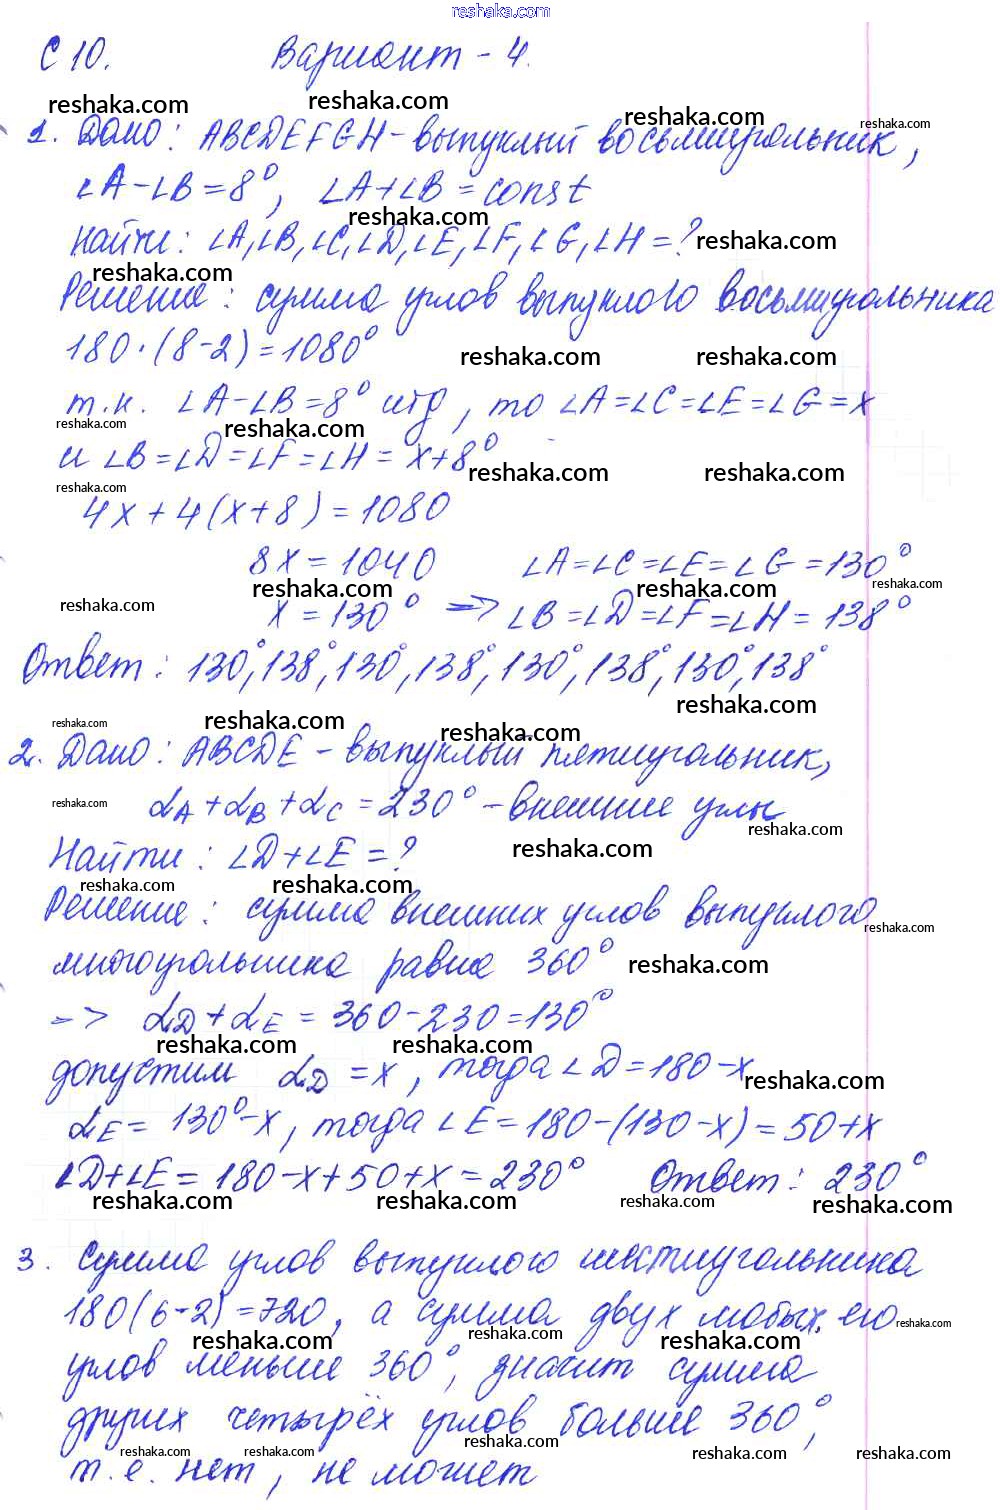 reshaka.com
С 10. Вариант - 4.
reshaka.com reshaka.com reshaka.com reshaka.com
1. Дано: ABCDEFGH - выпуклый восьмиугольник,
∠A - ∠B = 8°, ∠A + ∠B = const
reshaka.com
Найти: ∠A, ∠B, ∠C, ∠D, ∠E, ∠F, ∠G, ∠H = ? reshaka.com
reshaka.com
Решение: сумма углов выпуклого восьмиугольника
180 · (8-2) = 1080° reshaka.com reshaka.com
т.к. ∠A - ∠B = 8° итд, то ∠A = ∠C = ∠E = ∠G = x
reshaka.com reshaka.com
и ∠B = ∠D = ∠F = ∠H = x + 8° reshaka.com reshaka.com
reshaka.com
4x + 4(x + 8) = 1080
8x = 1040 ∠A = ∠C = ∠E = ∠G = 130°
reshaka.com reshaka.com reshaka.com
reshaka.com x = 130° => ∠B = ∠D = ∠F = ∠H = 138°
Ответ: 130°, 138°, 130°, 138°, 130°, 138°, 130°, 138°
reshaka.com
reshaka.com reshaka.com reshaka.com
2. Дано: ABCDE - выпуклый пятиугольник,
reshaka.com ∠A + ∠B + ∠C = 230° - внешние углы
reshaka.com
Найти: ∠D + ∠E = ? reshaka.com
reshaka.com reshaka.com
Решение: сумма внешних углов выпуклого reshaka.com
многоугольника равна 360° reshaka.com
=> ∠D + ∠E = 360 - 230 = 130°
reshaka.com reshaka.com
допустим ∠D = x, тогда ∠D = 180 - x reshaka.com
∠E = 130° - x, тогда ∠E = 180 - (130 - x) = 50 + x
∠D + ∠E = 180 - x + 50 + x = 230° Ответ: 230°
reshaka.com reshaka.com reshaka.com reshaka.com
3. Сумма углов выпуклого шестиугольника
180(6-2) = 720, а сумма двух любых его reshaka.com
reshaka.com reshaka.com reshaka.com
углов меньше 360°, значит сумма
других четырёх углов больше 360°,
reshaka.com reshaka.com reshaka.com reshaka.com reshaka.com
т.е. нет, не может